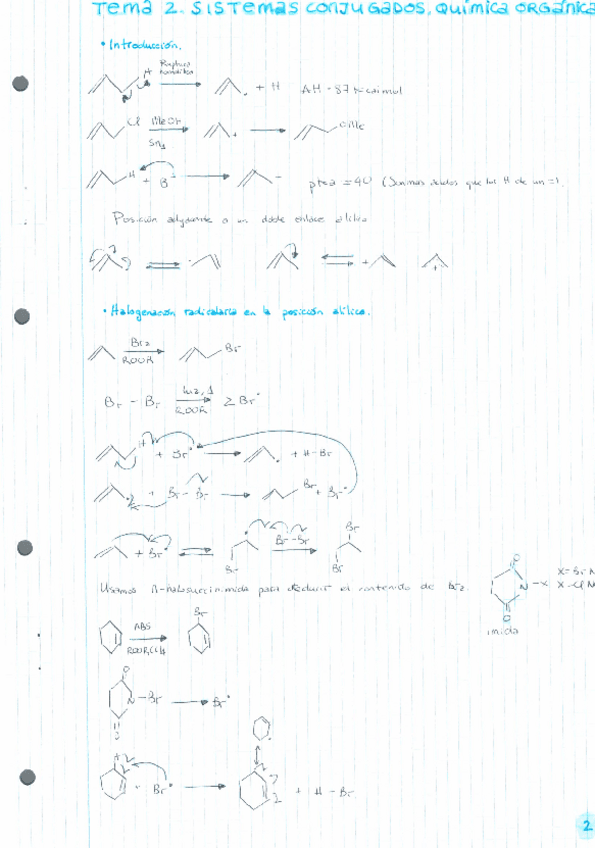 TEMA 2. SISTEMAS CONJUGADOS. QUÍMICA ORGÁNICA
• Introducción.
Ruptura
homolítica
H
+ H
ΔH - 87 kcal/mol
Cl
MeOH
SN1
OMe
H
+ B
pka = 40
Posición adyacente a un doble enlace alílica
• Halogenación radicalaria en la posición alílica.
Br2
ROOR
Br
Br - Br
ROOR
2 Br•
H
+ Br•
+ H-Br
+ Br - Br
Br
+ Br•
+ Br•
Br
Br-Br
Br
Br
Usamos N-halosuccinimida para reducir el contenido de Br2.
O
N-X
O
X=Br N
X=Cl N
imida
Br
O
N-Br
O
Br•
H
+ Br•
+ H-Br
2